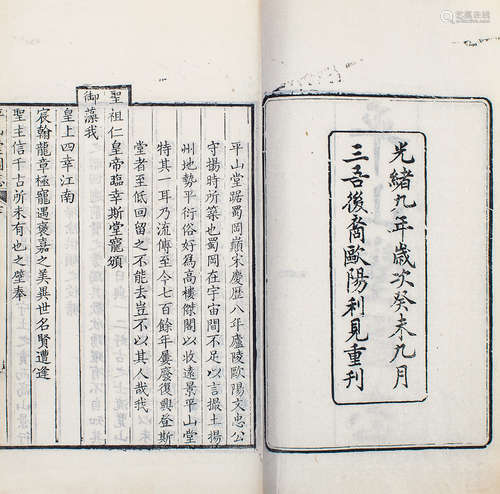 光緒九年歲次癸未九月
三吾後裔歐陽利見重刊
平山堂踞蜀岡巔宋慶歷八年廬陵歐陽文忠公
守揚時所築也蜀岡在宇宙間不足以言撮土揚
州地勢平衍俗好為高樓傑閣以收遠景平山堂
特其一耳乃流傳至今七百餘年屢廢復興登斯
堂者至低回留之不能去豈不以其人哉我
聖祖仁皇帝臨幸斯堂寵頒
御藻我
皇上四幸江南
宸翰龍章極寵遇褒嘉之美異世名賢遭逢
聖主信千古所未有也之壁奉
平山堂圖志